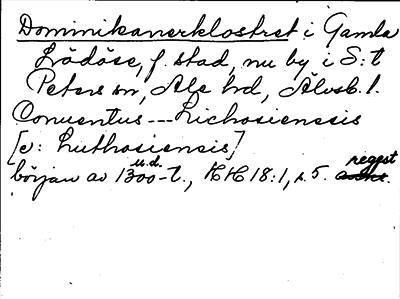 Dominikanerklostret i Gamla
Lödöse, f. stad, nu by i S:t
Peters sn, Ale hd, Älvsb. l.
Conventus --- Lichosiensis
[e: Luthosiensis]
u.d. regest
början av 1300-t., KH 18:1, s. 5.